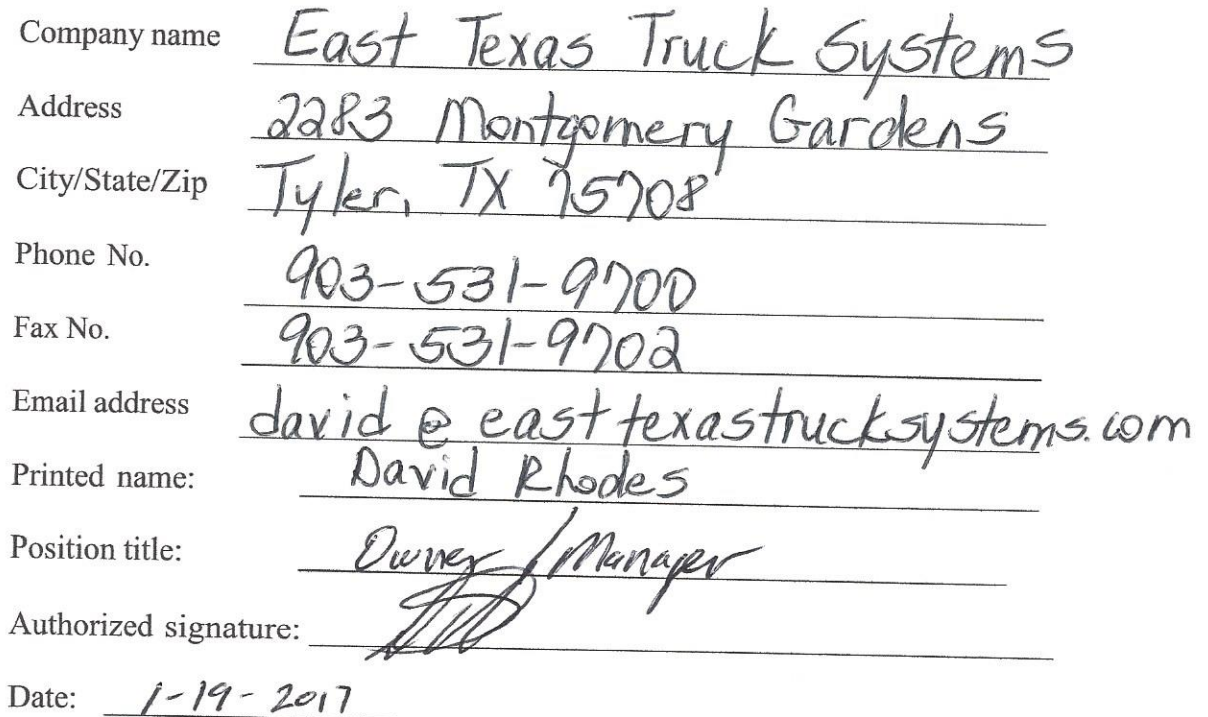 Company name East Texas Truck Systems
Address 2283 Montgomery Gardens
City/State/Zip Tyler, TX 75708
Phone No. 903-531-9700
Fax No. 903-531-9702
Email address david@easttexastrucksystems.com
Printed name: David Rhodes
Position title: Owner/Manager
Authorized signature:
Date: 1-19-2017